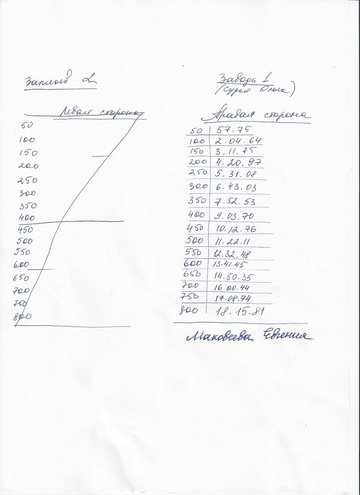 Заплыв 2
Левая сторона
50
100
150
200
250
300
350
400
450
500
550
600
650
700
750
800
Заводь 1
(судья Ольга)
Правая сторона
50 57.75
100 2.04.64
150 3.11.75
200 4.20.97
250 5.31.08
300 6.43.03
350 7.52.53
400 9.03.70
450 10.12.76
500 11.22.11
550 12.32.48
600 13.41.45
650 14.50.35
700 16.00.44
750 17.08.74
800 18.15.81
Маковеева Евгения